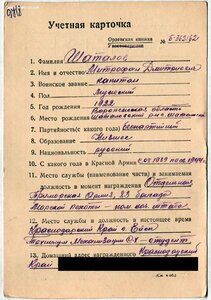 Учетная карточка
Орденская книжка
Удостоверение
№ Б-362162
1. Фамилия Шаталов
2. Имя и отчество Митрофан Дмитриевич
3. Воинское звание капитан
4. Пол Мужской
5. Год рождения 1922
Воронежская область
6. Место рождения
7. Партийность (с какого года) беспартийный
8. Образование Низшее
9. Национальность русский
10. С какого года в Красной Армии с 1939 по 1944г.
11. Место службы (наименование части) и занимаемая
должность в момент награждения Отдельная
Приморская Армия, 83 бригада
Морской пехоты - пом. нач. штаба
12. Место службы и должность в настоящее время
Краснодарский Край г. Ейск
Техникум Механизации с/х - студент
13. Домашний адрес награжденного Краснодарский
Край